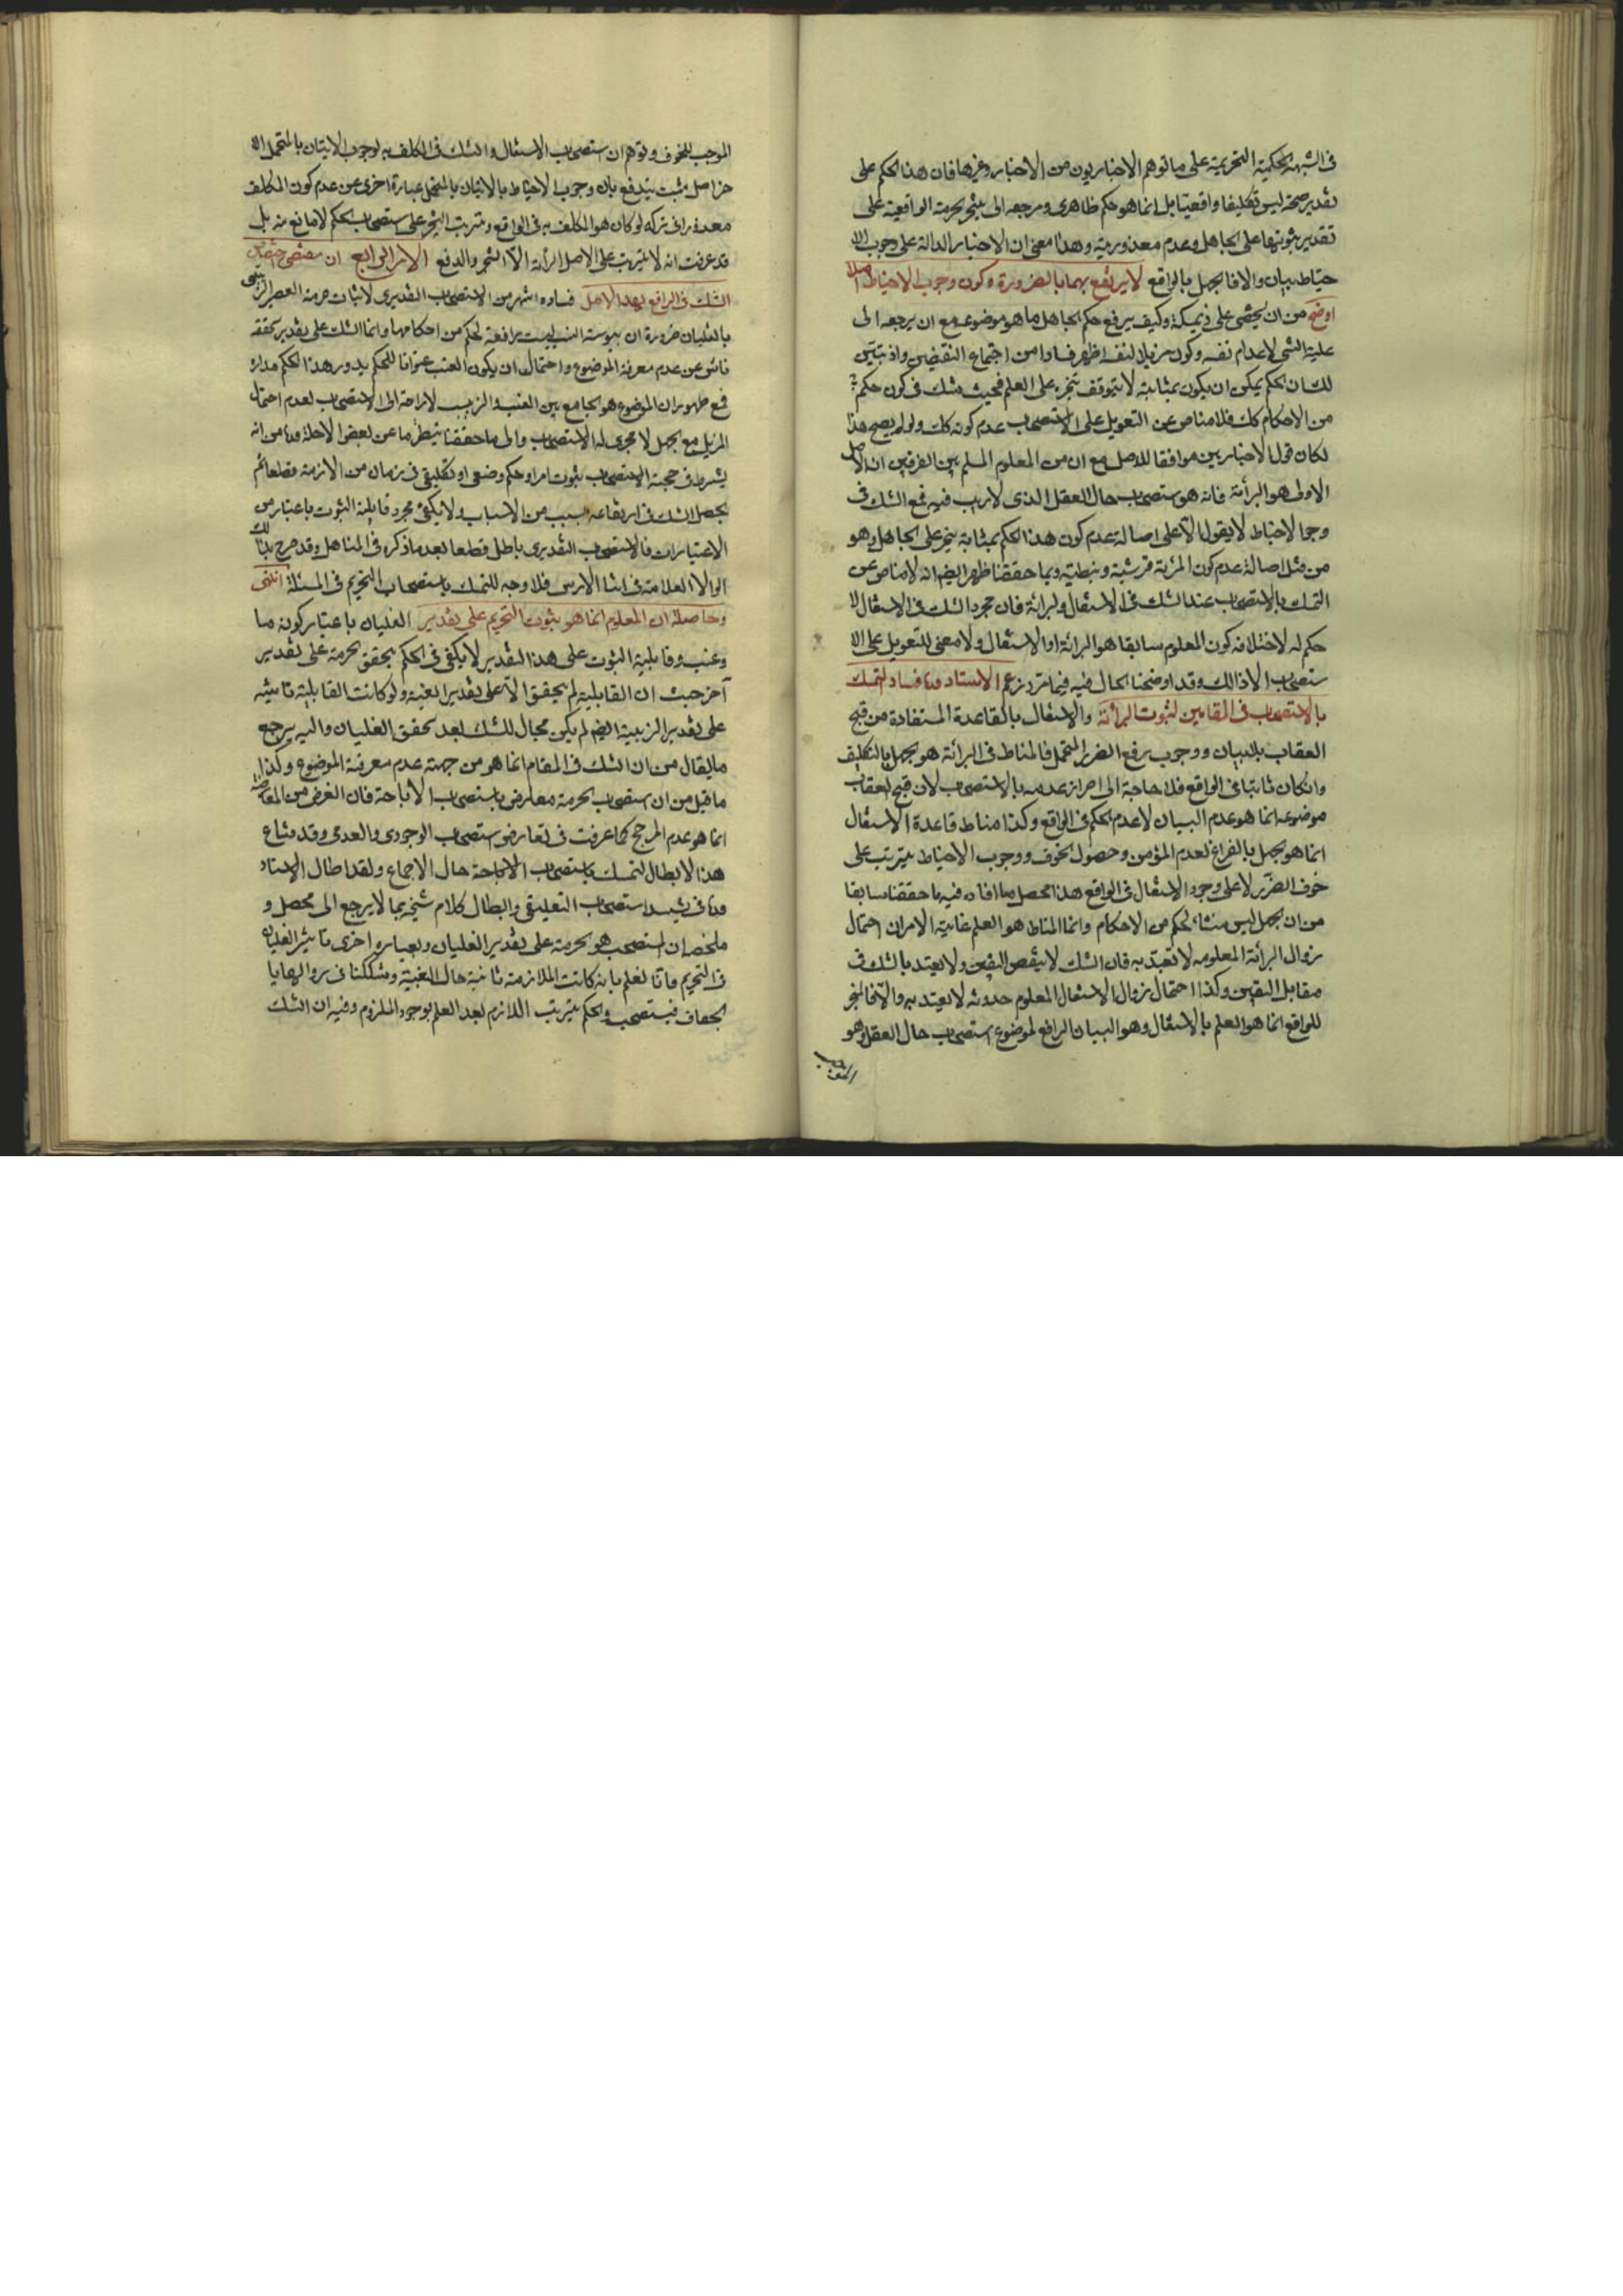 فى الشبهة الحكمية التحريمية على ما توهم الاخباريون من الاخبار وغيرها فان هذا الحكم على
تقدير صحته ليس تكليفا واقعيا بل انما هو حكم ظاهرى ومرجعه الى تنجز الحرمة الواقعية على
تقدير ثبوتها على الجاهل وعدم معذوريته وهذا معنى ان الاخبار الدالة على وجوب الا
حتياط بيان والا فالجهل بالواقع لا يرتفع بهما بالضرورة وكون وجوب الاحتياط اصلا
اوضح من ان يخفى على ذى مسكة وكيف يرفع حكم الجاهل ما هو موضوعه مع ان مرجعه الى
علية الشئ لاعدام نفسه وكون مزيلا لنفسه اظهر فسادا من اجتماع النقيضين واذ تبين
لك ان الحكم يمكن ان يكون بمثابة لا يتوقف تنجزه على العلم فحيث شك فى كون حكم
من الاحكام كك فلا مناص عن التعويل على الاستصحاب عدم كونه كك ولو لم يصح هذا
لكان قول الاخباريين موافقا للاصل مع ان من المعلوم المسلم بين الفريقين ان الاصل
الاولى هو البرأئة فانه هو ستصحاب حال العقل الذى لا ريب فيه فمع الشك فى
وجوب الاحتياط لا يعول الا على اصالة عدم كون هذا الحكم بمثابة تنجز على الجاهل وهو
من مثل اصالة عدم كون المرئة قرشية ونبطية وبما حققنا ظهر ايضا انه لا مناص عن
التمسك بالاستصحاب عند الشك فى الاشتغال والبرائة فان مجرد الشك فى الاشتغال لا
حكم له لاختلافه كون المعلوم سابقا هو البرائة او الاشتغال ولا معنى للتعويل على الا
ستصحاب الا ذالك وقد اوضحنا الحال فيه فيما مر وزعم الاستاد فساد التمسك
بالاستصحاب فى المقامين لثبوت البرأئة والاشتغال بالقاعدة المستفادة من قبح
العقاب بلا بيان ووجوب رفع الضرر المحتمل فالمناط فى البرائة هو الجهل بالتكليف
وانكان ثابتا فى الواقع فلا حاجة الى احراز عدمه بالاستصحاب لان قبح العقاب
موضوعه انما هو عدم البيان لا عدم الحكم فى الواقع وكذا مناط قاعدة الاشتغال
انما هو الجهل بالفراغ لعدم المؤمن وحصول الخوف ووجوب الاحتياط يترتب على
خوف الضرر لا على وجود الاشتغال فى الواقع هذا محصل ما افاده فيه ما حققنا سابقا
من ان الجهل ليس منشاء لحكم من الاحكام وانما المناط هو العلم غاية الامر ان احتمال
زوال البرأئة المعلومه لا تعبد به فان الشك لا ينقض اليقين ولا يعتد بالشك فى
مقابل اليقين وكذا احتمال زوال الاشتغال المعلوم حدوثه لا يعتد به والا فالمنجز
للواقع انما هو العلم بالاشتغال وهو البيان الرافع لموضوع استصحاب حال العقل وهو
الموجب
الموجب للخوف وتوهم ان ستصحاب الاشتغال والشك فى المكلف به لوجوب الاتيان بالمحتمل الا
خر اصل مثبت يندفع بان وجوب الاحتياط بالاتيان بالمحتمل عبارة اخرى عن عدم كون المكلف
معذورا فى تركه لو كان هو المكلف به فى الواقع وترتب التنجز على ستصحاب الحكم لا مانع منه بل
قد عرفت انه لا يترتب على الاصل البرائة الا التنجز والدفع الامر الرابع ان مقتضى اختصاص
الشك فى الرافع بهذا الاصل فساده اشهر من الاستصحاب التقديرى لاثبات حرمة العصير الزبيبى
بالغليان ضرورة ان يبوسة العنب ليست رافعة لحكم من احكامها وانما الشك على تقدير تحققه
ناش عن عدم معرفة الموضوع واحتمال ان يكون العنب عنوانا للحكم يدور هذا الحكم مداره
فمع ظهور ان الموضوع هو الجامع بين العنب والزبيب لا حاجة الى الاستصحاب لعدم احتمال
المزيل مع الجهل لا مجرى له الاستصحاب والى ما حققنا ينظر ما عن بعض الاجلة من انه
يشترط فى حجية الاستصحاب ثبوت امر او حكم وضعى او تكليفى فى زمان من الازمنة قطعا ثم
يحصل الشك فى ارتفاعه بسبب من الاسباب ولا يكفى مجرد قابلية الثبوت باعتبار من
الاعتبارات فالاستصحاب التقديرى باطل قطعا بعد ما ذكر فى المناهل وقد صرح بذلك
الوالد العلامة فى اثناء الدرس فلا وجه للتمسك باستصحاب التحريم فى المسئلة انتهى
وحاصله ان المعلوم انما هو ثبوت التحريم على تقدير الغليان باعتبار كونه ما
وعنب وقابلية الثبوت على هذا التقدير لا يكفى فى الحكم بتحقق الحرمة على تقدير
آخر حيث ان القابلية لم يتحقق الا على تقدير العنبية ولو كانت القابلية ثابتة
على تقدير الزبيبية ايضا لم يكن مجال للشك بعد تحقق الغليان واليه يرجع
ما يقال من ان الشك فى المقام انما هو من جهة عدم معرفة الموضوع وكذا
ما قيل من ان ستصحاب الحرمة معارض باستصحاب الاباحة فان الغرض من المعارضة
انما هو عدم المرجح كما عرفت فى تعارض ستصحاب الوجودى والعدمى وقد شاع
هذا الابطال لتمسك باستصحاب الاباحة حال الاجماع ولقد اطال الاستاد
فى تشييد استصحاب التعليقى وابطال كلام شيخه بما لا يرجع الى محصل و
ملخصه ان المستصحب هو الحرمة على تقدير الغليان وبعبارة اخرى تاثير الغليان
فى التحريم فانا نعلم بانه كانت الملازمة ثابتة حال العنبية وشككنا فى زوالها با
لجفاف فيستصحب والحكم بترتب اللازم بعد العلم بوجود الملزوم وفيه ان الشك